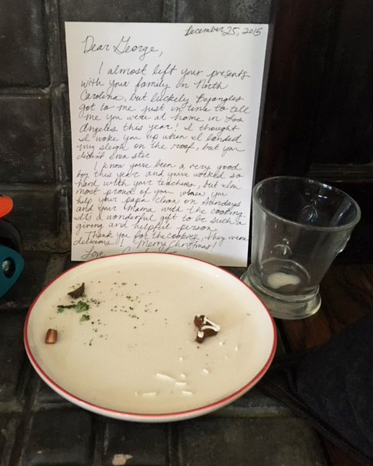 December 25, 2015
Dear George,
I almost left your presents
with your family in North
Carolina, but luckily Bojangles
got to me just in time to tell
me you were at home in Los
Angeles this year! I thought
I woke you up when I landed
my sleigh on the roof, but you
didn't even stir.
I know you've been a very good
boy this year and you've worked so
hard with your teachers, but I'm
most proud of you when you
help your papa clean on Mondays
and your mama with the cooking.
It's a wonderful gift to be such a
giving and helpful person.
Thank you for the cookies, they were
delicious! Merry Christmas!
Love,